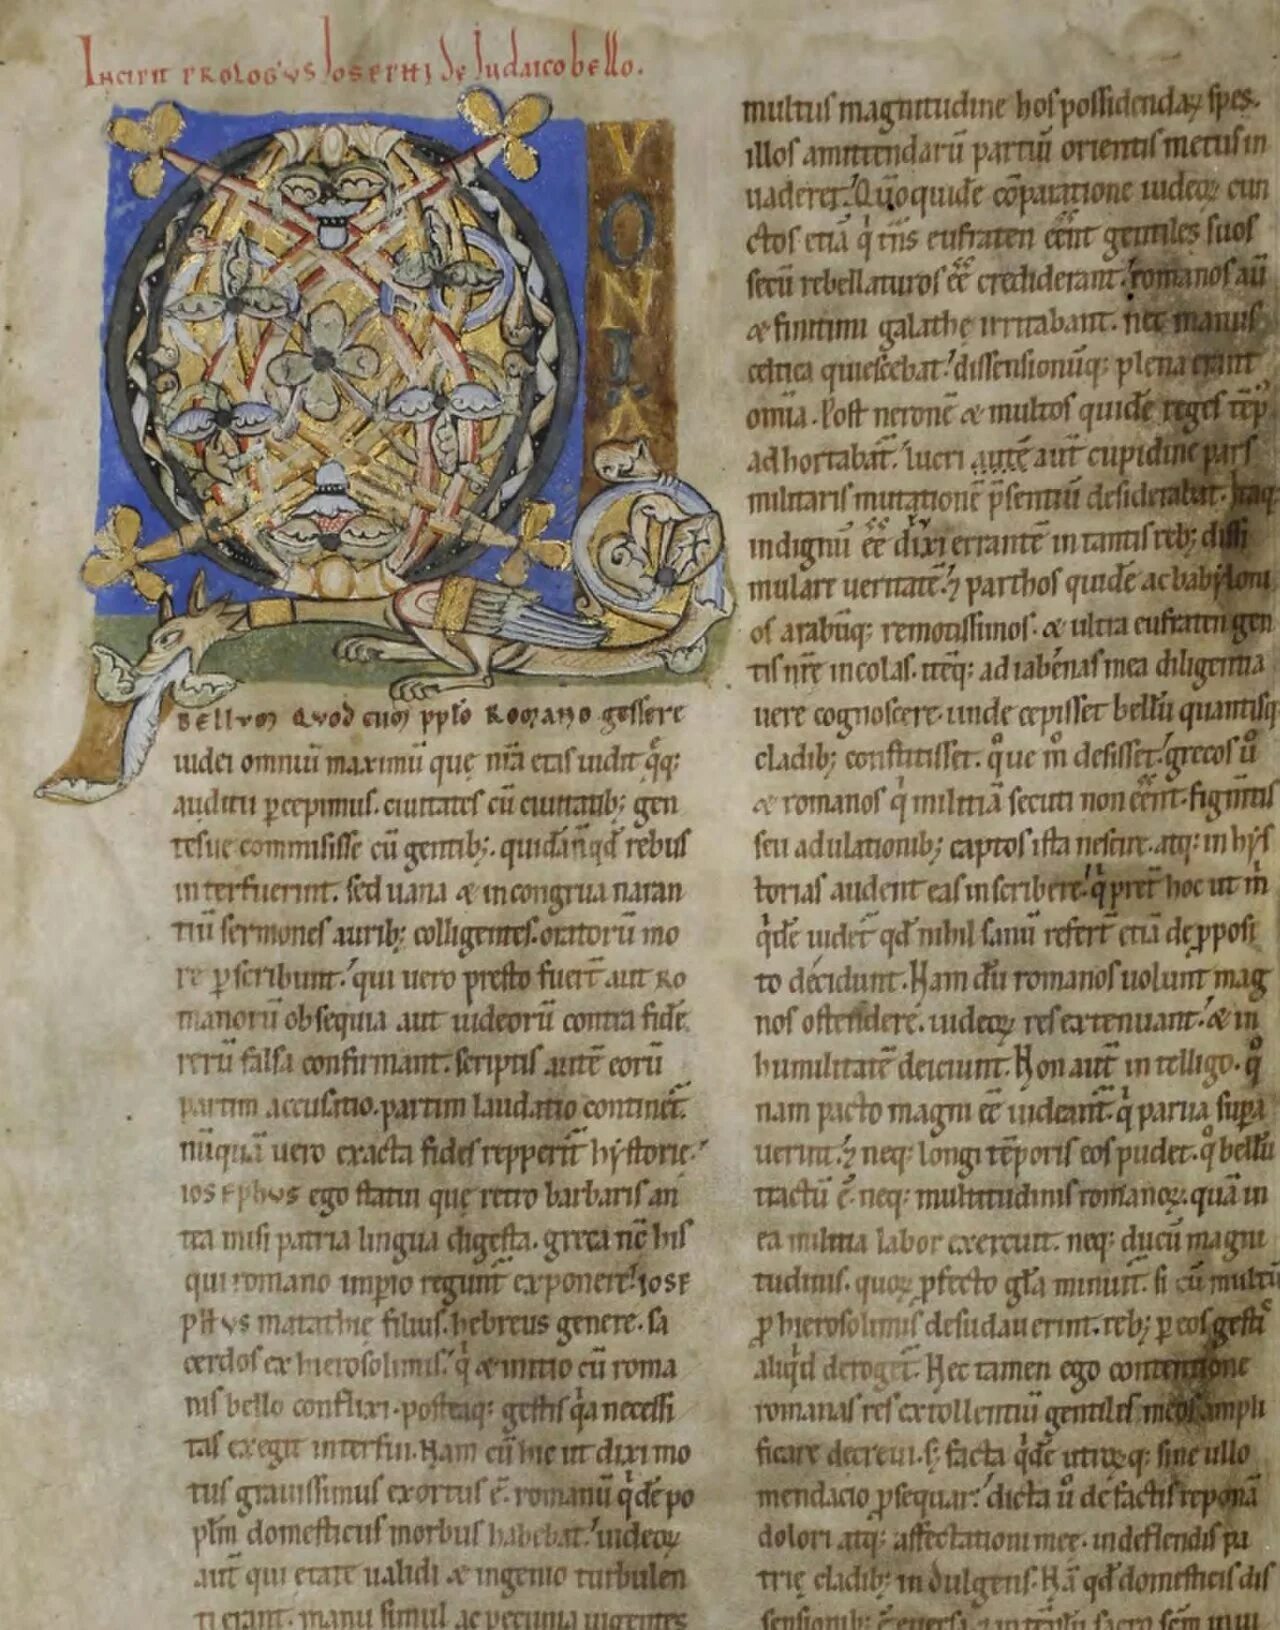 Incipit prologus Iosephi de Iudaico bello.
QVONIA
bellum quod cum pplo Romano gessere
iudei omniū maximū que nr̄a etas uidit q̄q;
auditu ꝑcepimus. ciuitates cū ciuitatib; gen
tesue commisisse cū gentib;. quidā n̄ qd̓ rebus
interfuerint. sed uana & incongrua narran
tiū sermones aurib; colligentes. oratorū mo
re ꝑscribunt. qui uero presto fuerī aut Ro
manorū obsequia aut iudeorū contra fidē
rerū falsa confirmant. scriptis autē eorū
partim accusatio. partim laudatio continet̄.
nūquā uero exacta fides repperit̄ hystorie.
iosephus ego statui que retro barbaris an
tea misi patria lingua digesta. greca nc̄ his
qui romano imꝑio regunt̄ exponere. iose
phus matathie filius. hebreus genere. sa
cerdos ex hierosolimis. q̓ & initio cū roma
nis bello conflixi. posteaq; gestis q̓a necessi
tas exegit interfui. Nam cū hic ut dixi mo
tus grauissimus exortus ē. romanū q̓dē po
pl̄m domesticus morbus habebat. iudeoꝝ
aut̄ qui etate ualidi & ingenio turbulen
ti erant. manu simul ac pecunia uigentes
multus magnitudine hos possidendaꝝ spes.
illos amittendarū partiū orientis metus in
uaderet. Qm̄ quidē cōparatione iudeoꝝ cun
ctos etiā q̓ trns eufraten eēnt gentiles suos
secū rebellaturos eē crediderant. romanos aū
& finitimi galathe irritabant. nec manus
celtica quiescebat. dissensionūq; plena erant
omīa. Post neronē & multos quidē reges tēp
adhortabat̄. lucri autē aut̄ cupidine pars
militaris mutationē p̄sentiū desiderabat. Itaq;
indignū eē dixi errantē in tantis reb; dissi
mulare ueritatē. & parthos quidē ac babyloni
os arabūq; remotissimos. & ultra eufraten gen
tis nr̄e incolas. itēq; adiabenas mea diligentia
uere cognoscere. unde cepisset bellū quantisq;
cladib; constitisset. q̊ue m̊ desisset. grecos ů
& romanos q̓ militiā secuti non eēnt. figm̄tis
seu adulationib; captos ista nescire. atq; in hys
torias audent eas inscribere. q̓ pret̄ hoc ut m̄
q̓dē uidet̄ qd̓ nihil sanū refert̄ etiā de ꝓposi
to decidunt. Nam dū romanos uolunt mag
nos ostendere. iudeoꝝ res extenuant. & in
humilitatē deiciunt. Non aut̄ intelligo. q̊
nam pacto magni eē uideant̄. q̓ parua supa
uerint. & neq; longi tēporis eos pudet. q̊ bellū
tractū ē. neq; multitudinis romanoꝝ. quā in
ea militia labor exercuit. neq; ducū magni
tudinis. quoꝝ ꝓfecto gl̄a minuit̄. si cū multū
ꝓ hierosolimis desudauerint. reb; ꝑ eos gestis
aliq̓d deroget̄. Nec tamen ego contentione
romanas res extollentiū gentilis meos ampli
ficare decreui. s; facta q̓dē utroꝝq; sine ullo
mendacio ꝓsequar. dicta ů de factis reponā
dolori atq; affectationi mee. in deflendis pa
trie cladib; indulgens. Nā qd̓ domesticis dis
sensionib; ē euersa